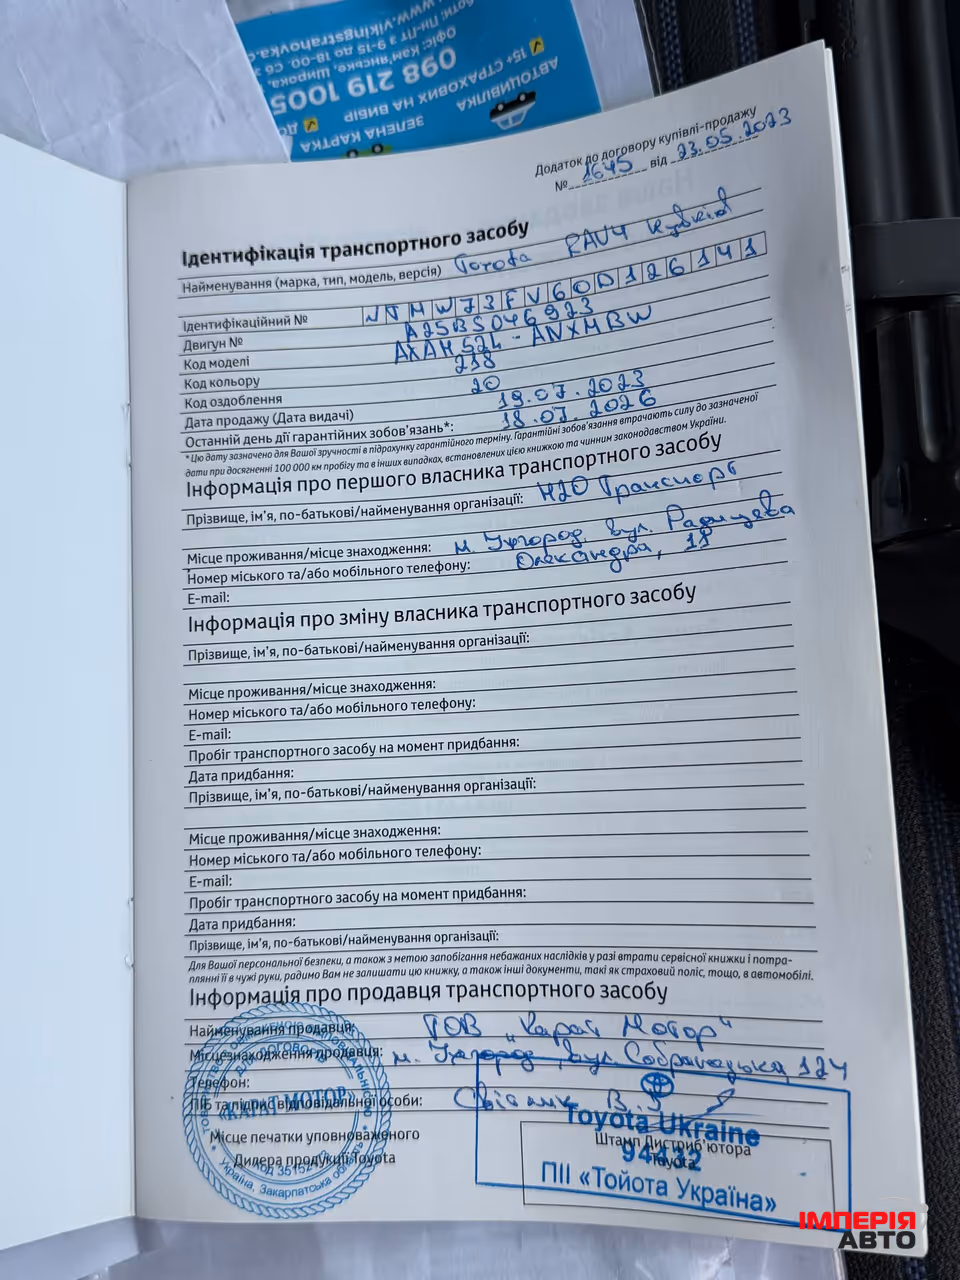 боти: Пн-Пт з 9-15 до 18-00. Сб з
www.vikingstrahovka.c
Офіс: Кам'янське, Широка,
098 219 1005
15+ СТРАХОВИХ НА ВИБІР
АВТОЦИВІЛКА
ЗЕЛЕНА КАРТКА
Додаток до договору купівлі-продажу
№ 1645 від 23.05.2023
Ідентифікація транспортного засобу
Найменування (марка, тип, модель, версія) Toyota RAV4 Hybrid
Ідентифікаційний № JTMW73FV60D126141
Двигун № A25BS046923
Код моделі AXAH52L-ANXMBW
Код кольору 218
Код оздоблення 20
Дата продажу (Дата видачі) 19.07.2023
Останній день дії гарантійних зобов'язань*: 18.07.2026
* Цю дату зазначено для Вашої зручності в підрахунку гарантійного терміну. Гарантійні зобов'язання втрачають силу до зазначеної
дати при досягненні 100 000 км пробігу та в інших випадках, встановлених цією книжкою та чинним законодавством України.
Інформація про першого власника транспортного засобу
Прізвище, ім'я, по-батькові/найменування організації: Н2О Транспорт
Місце проживання/місце знаходження: м. Ужгород, вул. Радищева
Номер міського та/або мобільного телефону: Олександра, 18
E-mail:
Інформація про зміну власника транспортного засобу
Прізвище, ім'я, по-батькові/найменування організації:
Місце проживання/місце знаходження:
Номер міського та/або мобільного телефону:
E-mail:
Пробіг транспортного засобу на момент придбання:
Дата придбання:
Прізвище, ім'я, по-батькові/найменування організації:
Місце проживання/місце знаходження:
Номер міського та/або мобільного телефону:
E-mail:
Пробіг транспортного засобу на момент придбання:
Дата придбання:
Прізвище, ім'я, по-батькові/найменування організації:
Для Вашої персональної безпеки, а також з метою запобігання небажаних наслідків у разі втрати сервісної книжки і потра-
плянні її в чужі руки, радимо Вам не залишати цю книжку, а також інші документи, такі як страховий поліс, тощо, в автомобілі.
Інформація про продавця транспортного засобу
Найменування продавця: ТОВ „Карат Мотор"
Місцезнаходження продавця: м. Ужгород, вул. Собранецька, 124
Телефон:
ПІБ та підпис відповідальної особи:
Місце печатки уповноваженого
Дилера продукції Toyota
«КАРАТ МОТОР»
Україна, Закарпатська область
Штамп Дистриб'ютора
Toyota
Toyota Ukraine
94432
ПІІ «Тойота Україна»
ІМПЕРІЯ
АВТО